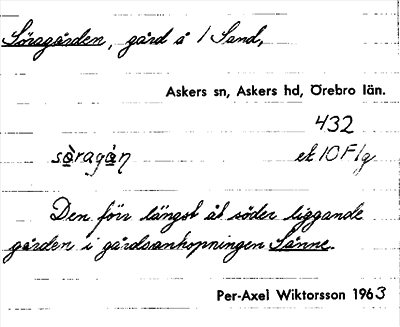 Söragården, gård å 1 Sand,
Askers sn, Askers hd, Örebro län.
432
sö̀ragàn ek 10 F 1g
Den förr längst åt söder liggande
gården i gårdsanhopningen Sanne.
Per-Axel Wiktorsson 1963